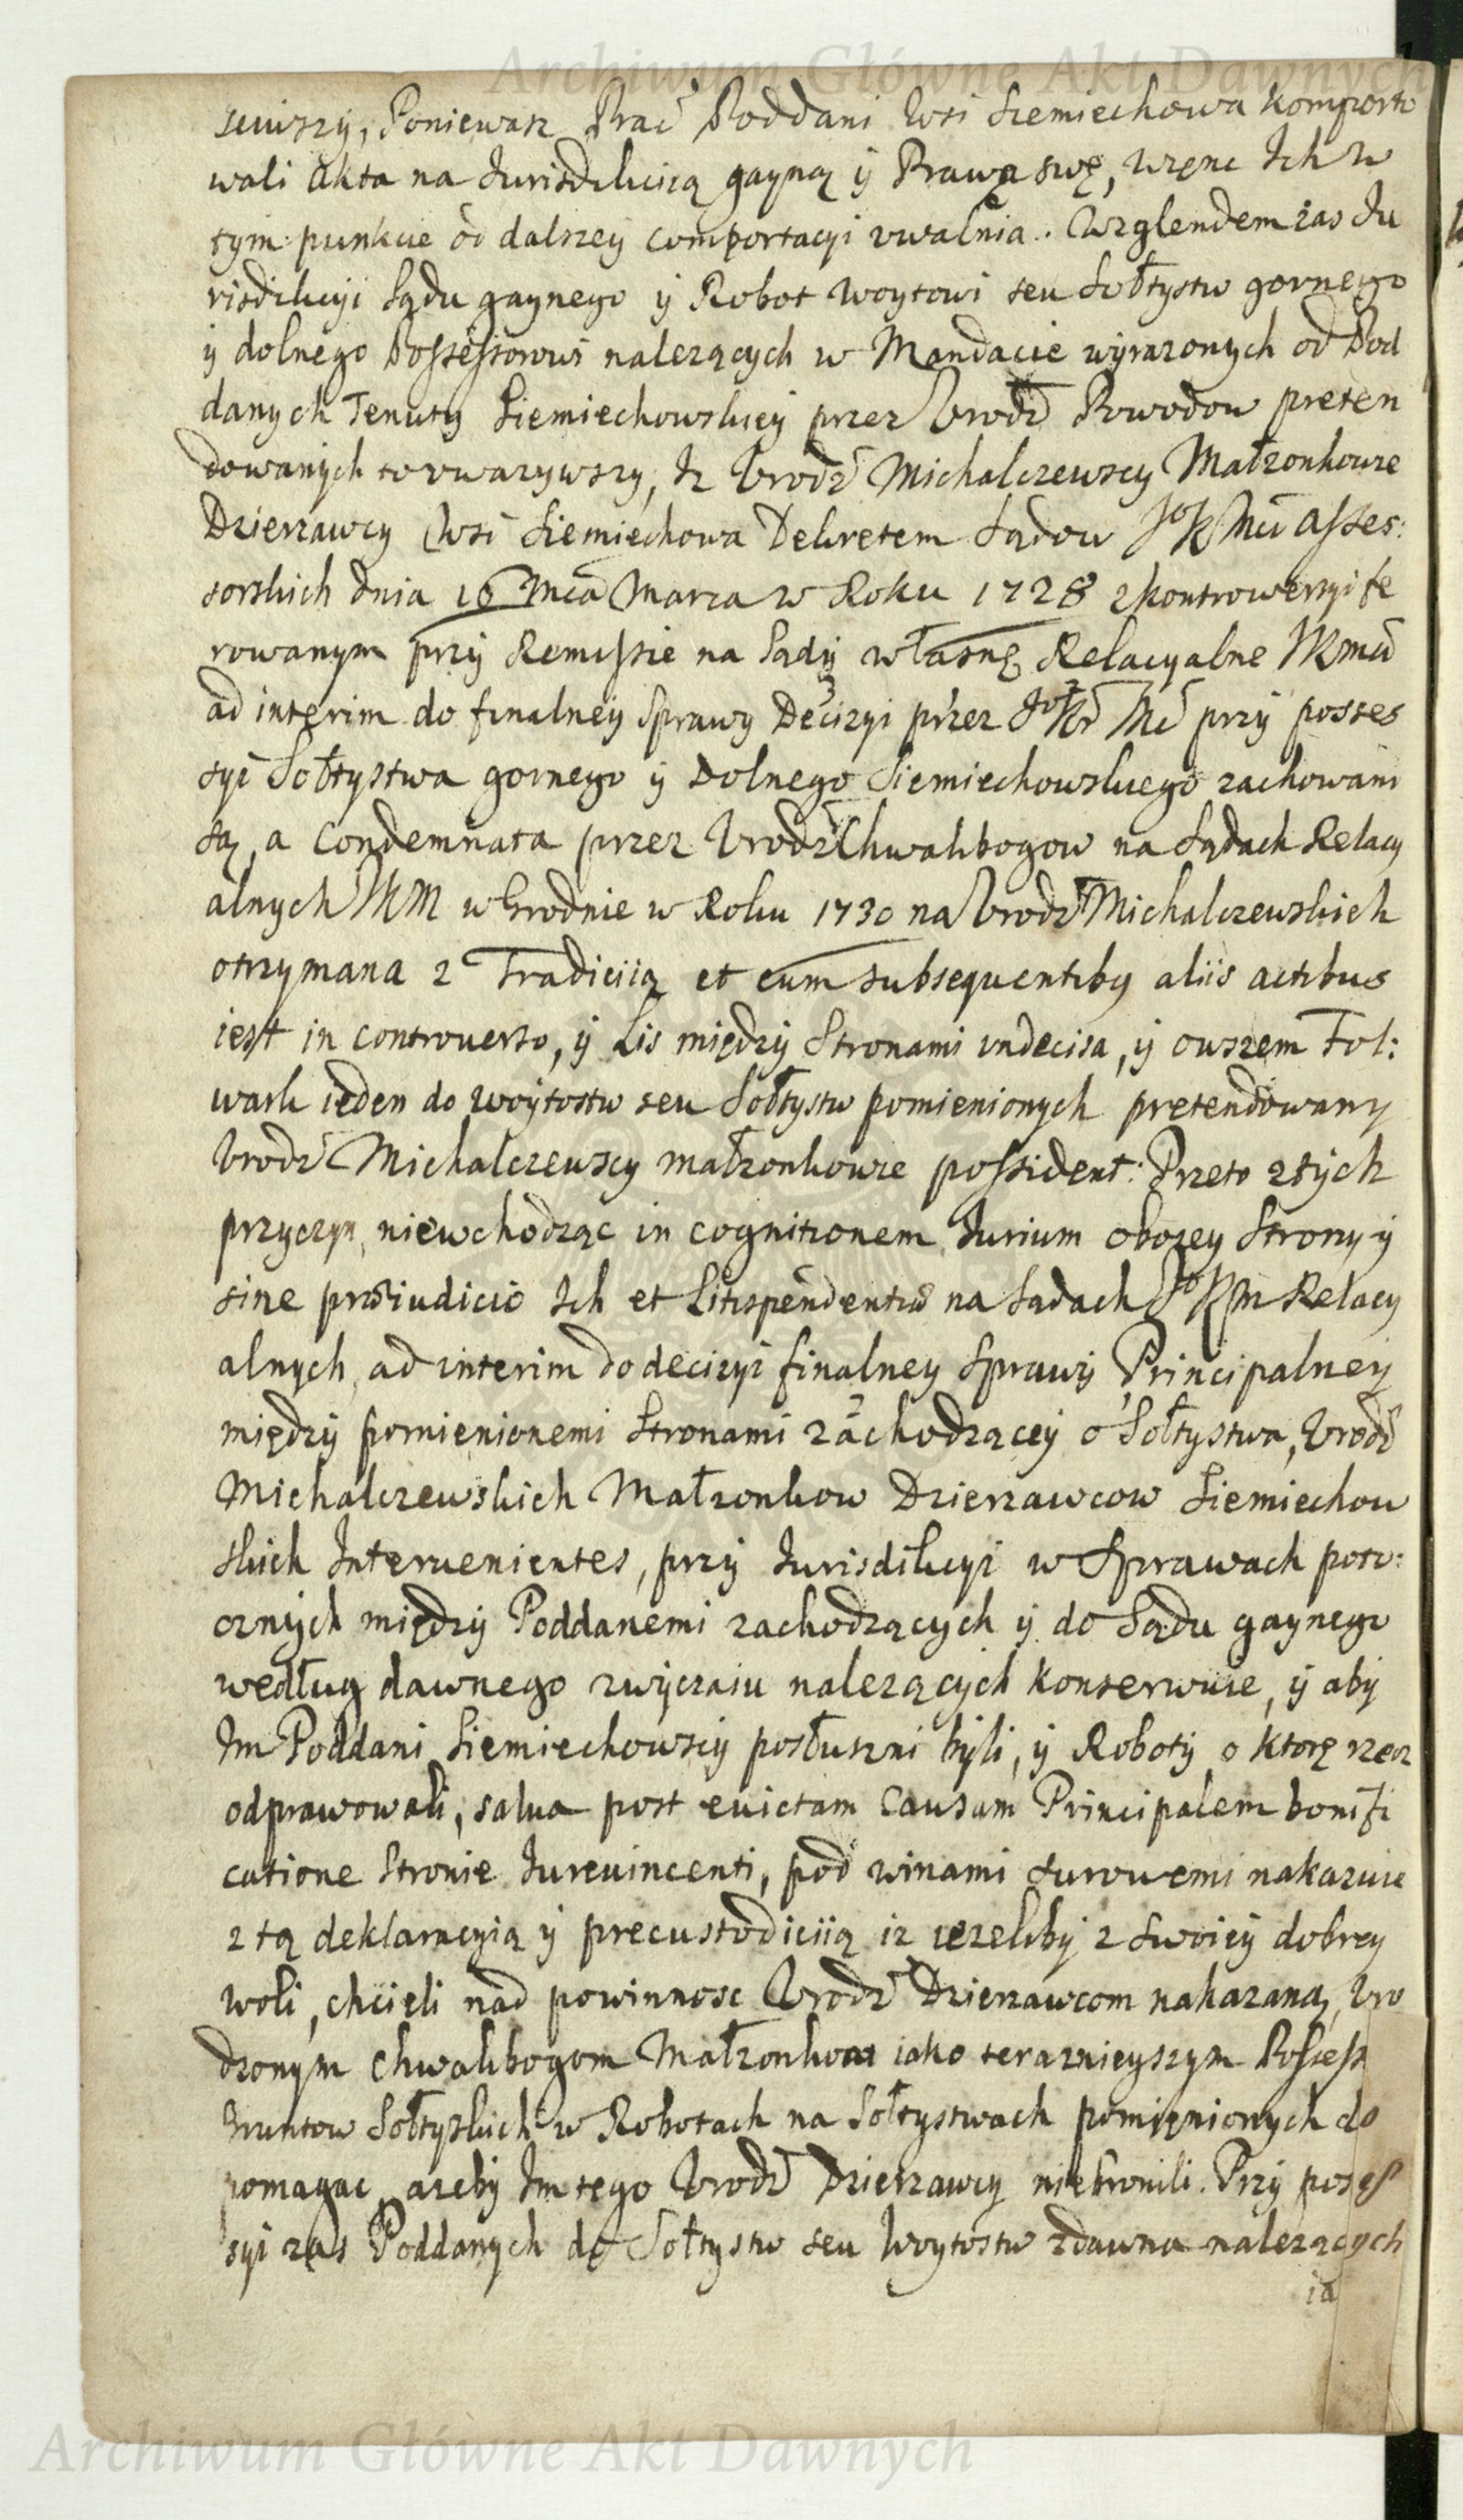 Archiwum Główne Akt Dawnych
sciwszy, Poniewasz Prać Poddani Wsi Siemiechowa komporto
wali Akta na Jurisdikcią gayną y Prawa swę, więnc Ich w
tym punkcie od dalszey comportacyi uwalnia. Względem zas Ju
risdikcyi Sądu gaynego y Robot woytowi seu Sołtystw gornego
y dolnego Possessorowi nalezących w Mandacie wyrazonych od Pod
danych Tenuty Siemiechowskiey przez Urodz Powodow preten
dowanych to uwazywszy, Iz Urodz Michalczewscy Małzonkowie
Dzierzawcy Wsi Siemiechowa Dekretem Sądow JoKMci Asses:
sorskich dnia 16 Mca Marca w Roku 1728 z kontrowersyi fe
rowanym przy Remissie na Sądy własnę Relacyalne JKmci
ad interim do finalney Sprawy Decizyi przez JoKr Mc przy posses
syi Sołtystwa gornego y Dolnego Siemiechowskiego zachowani
są, a Condemnata przez Urodz Chwalibogow na Sądach Relacy
alnych JKM w Grodnie w Roku 1730 na Urodz Michalczewskich
otrzymana z Tradiciią et cum subsequentiby aliis actibus
iest in controverso, y Lis między Stronami indecisa, y owszem Fol:
wark ieden do woytostw seu Sołtystw pomienionych pretendowany
Urodz Michalczewscy małzonkowie possident: Przeto z tych
przyczyn, niewchodząc in cognitionem Jurium obozey Strony y
sine præiudicio Ich et Litispendentiæ na Sądach JoKM Relacy
alnych, ad interim do decizyi finalney Sprawy Principalney
między pomienionemi Stronami zachodzącey o Sołtystwa, Urodz
Michalczewskich Małzonkow Dzierzawcow Siemiechow
skich Intervenientes, przy Jurisdikcyi w Sprawach poto:
cznych między Poddanemi zachodzących y do Sądu gaynego
według dawnego zwyczaiu nalezących konserwuie, y aby
Im Poddani Siemiechowscy posłuszni byli, y Roboty o ktorę rzecz
odprawowali, salva post evictam Causam Principalem bonifi
catione Stronie Jurevincenti, pod winami surowemi nakazuie
z tą deklaracyią y precustodiciią iz iezeliby z swoiey dobrey
woli, chcieli nad powinnosc Urodz Dzierzawcom nakazaną, Uro
dzonym Chwalibogom Małzonkom iako teraznieyszym Possess
Gruntow Sołtyskich w Robotach na Sołtystwach pomienionych do
pomagac, azeby Im tego Urodz Dzierzawcy niebronili. Przy poses
syi zas Poddanych do Sołtystw seu Woytostw zdawna nalezących
ia
Archiwum Główne Akt Dawnych